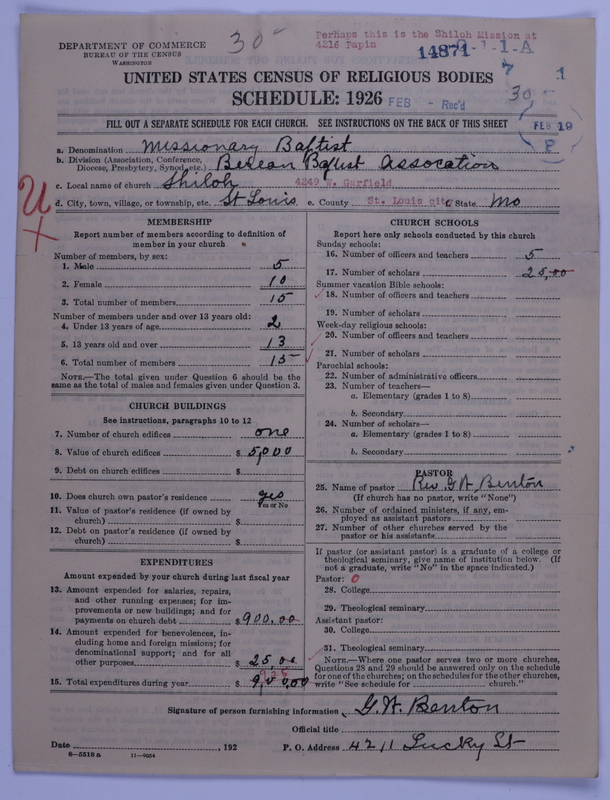 30-
Perhaps this is the Shiloh Mission at
4216 Papin
DEPARTMENT OF COMMERCE
BUREAU OF THE CENSUS
WASHINGTON
14871
1-A
7
1
UNITED STATES CENSUS OF RELIGIOUS BODIES
SCHEDULE: 1926
FEB - Rec'd
30-
FILL OUT A SEPARATE SCHEDULE FOR EACH CHURCH. SEE INSTRUCTIONS ON THE BACK OF THIS SHEET
FEB 19
P
a. Denomination Missionary Baptist
b. Division (Association, Conference, Diocese, Presbytery, Synod, etc.) Berean Baptist Assocation
c. Local name of church Shiloh 4249 W. Garfield
d. City, town, village, or township, etc. St Louis e. County St. Louis city f. State Mo
MEMBERSHIP
Report number of members according to definition of member in your church
Number of members, by sex:
1. Male 5
2. Female 10
3. Total number of members 15
Number of members under and over 13 years old:
4. Under 13 years of age 2
5. 13 years old and over 13
6. Total number of members 15
NOTE.—The total given under Question 6 should be the same as the total of males and females given under Question 3.
CHURCH BUILDINGS
See instructions, paragraphs 10 to 12
7. Number of church edifices one
8. Value of church edifices $ 5,000
9. Debt on church edifices $
10. Does church own pastor's residence yes
Yes or No
11. Value of pastor's residence (if owned by church) $
12. Debt on pastor's residence (if owned by church) $
EXPENDITURES
Amount expended by your church during last fiscal year
13. Amount expended for salaries, repairs, and other running expenses; for improvements or new buildings; and for payments on church debt $ 900.00
14. Amount expended for benevolences, including home and foreign missions; for denominational support; and for all other purposes $ 25,00
925
15. Total expenditures during year $
CHURCH SCHOOLS
Report here only schools conducted by this church
Sunday schools:
16. Number of officers and teachers 5
17. Number of scholars 25,00
Summer vacation Bible schools:
18. Number of officers and teachers
19. Number of scholars
Week-day religious schools:
20. Number of officers and teachers
21. Number of scholars
Parochial schools:
22. Number of administrative officers
23. Number of teachers—
a. Elementary (grades 1 to 8)
b. Secondary
24. Number of scholars—
a. Elementary (grades 1 to 8)
b. Secondary
PASTOR
25. Name of pastor Rev. G. W. Benton
(If church has no pastor, write "None")
26. Number of ordained ministers, if any, employed as assistant pastors
27. Number of other churches served by the pastor or his assistants
If pastor (or assistant pastor) is a graduate of a college or theological seminary, give name of institution below. (If not a graduate, write "No" in the space indicated.)
Pastor: 0
28. College
29. Theological seminary
Assistant pastor:
30. College
31. Theological seminary
NOTE.—Where one pastor serves two or more churches, Questions 28 and 29 should be answered only on the schedule for one of the churches; on the schedules for the other churches, write "See schedule for church."
Signature of person furnishing information G. W. Benton
Official title
Date , 192
P. O. Address 4211 Lucky St
8-5518 a
11-9054